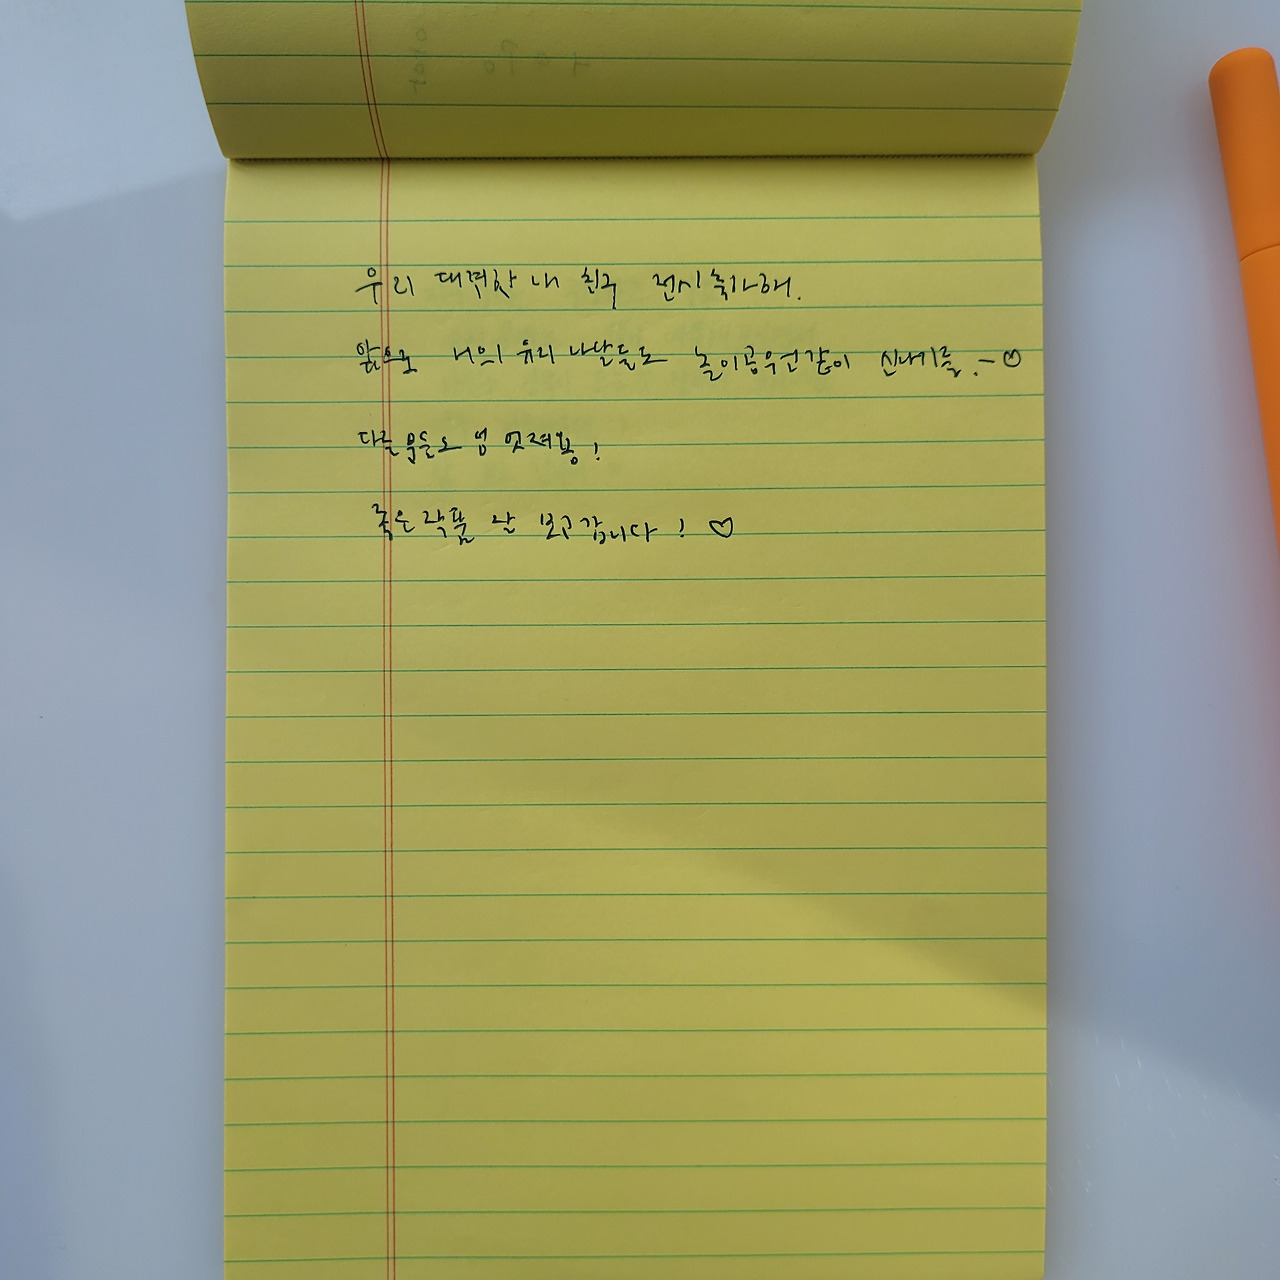 우리 대견한 내 친구 전시축하해.
앞으로 너의 유리 나날들도 놀이공우원같이 신나기를.~♡
다른 분들도 넘 멋져용!
좋은 작품 잘 보고갑니다! ♡